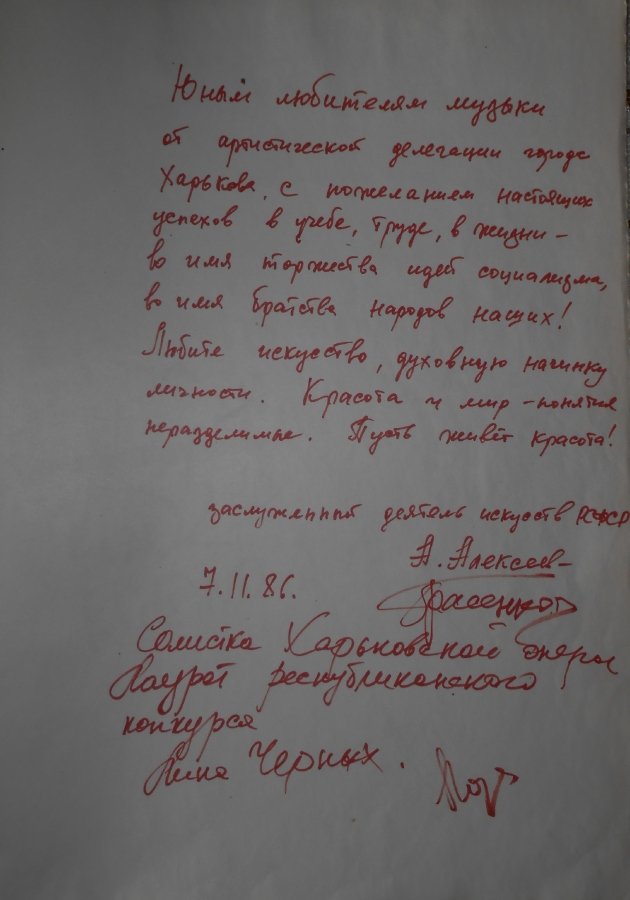 Юным любителям музыки
от артистической делегации города
Харькова, с пожеланием настоящих
успехов в учебе, труде, в жизни –
во имя торжества идей социализма,
во имя братства народов наших!
Любите искусство, духовную начинку
личности. Красота и мир – понятия
неразделимые. Пусть живёт красота!
заслуженный деятель искусств РСФСР
А. Алексеев –
7.11.86.
Солистка Харьковской оперы
Лауреат республиканского
конкурса
Нина Черных.